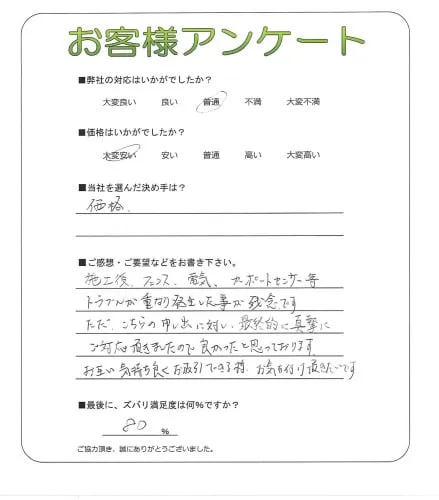 お客様アンケート
■弊社の対応はいかがでしたか？
大変良い 良い 普通 不満 大変不満
■価格はいかがでしたか？
大変安い 安い 普通 高い 大変高い
■当社を選んだ決め手は？
価格、
■ご感想・ご要望などをお書き下さい。
施工後、フェンス、電気、カーポートセンサー等
トラブルが重なり発生した事が残念です
ただ、こちらの申し出に対し、最終的に真摯に
ご対応頂きましたので良かったと思っております。
お互い気持ち良くお取引できる様、お気を付け頂きたいです
■最後に、ズバリ満足度は何％ですか？
80 %
ご協力頂き、誠にありがとうございました。